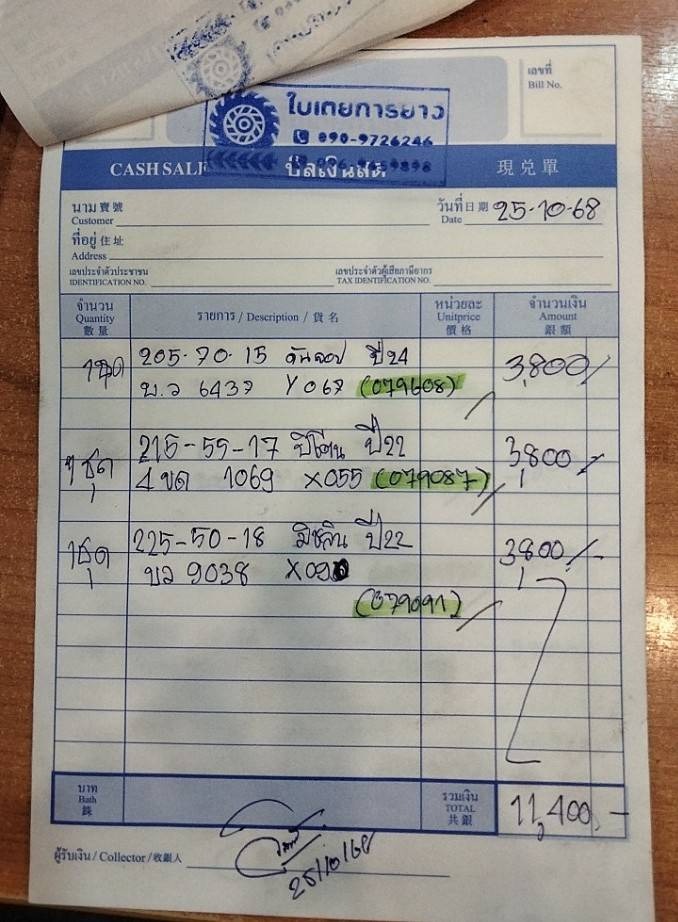 ใบเตยการยาง
090-9726246
CASH SALE บิลเงินสด 現兑單
เลขที่
Bill No.
นาม 寶號
Customer
วันที่ 日期 25-10-68
Date
ที่อยู่ 住址
Address
เลขประจำตัวประชาชน เลขประจำตัวผู้เสียภาษีอากร
IDENTIFICATION NO. TAX IDENTIFICATION NO.
จำนวน รายการ / Description / 貨名 หน่วยละ จำนวนเงิน
Quantity Unitprice Amount
數量 價格 銀額
1ชุด 205-70-15 ปี24 3,800/
6437 Y067 (079608)
1ชุด 215-55-17 ปี22 3,800
1069 X055 (079087)
1ชุด 225-50-18 มิชลิน ปี22 3800/-
9038
(079091)
บาท รวมเงิน
Bath TOTAL 11,400.-
銖 共銀
ผู้รับเงิน / Collector / 收銀人
25/10/68